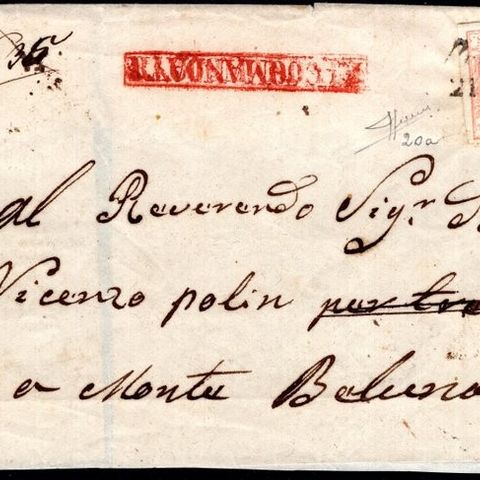 36.
RACCOMANDATA
21
20a
al Reverendo Sigr. D
Vicenzo polin
a Monte Beluna